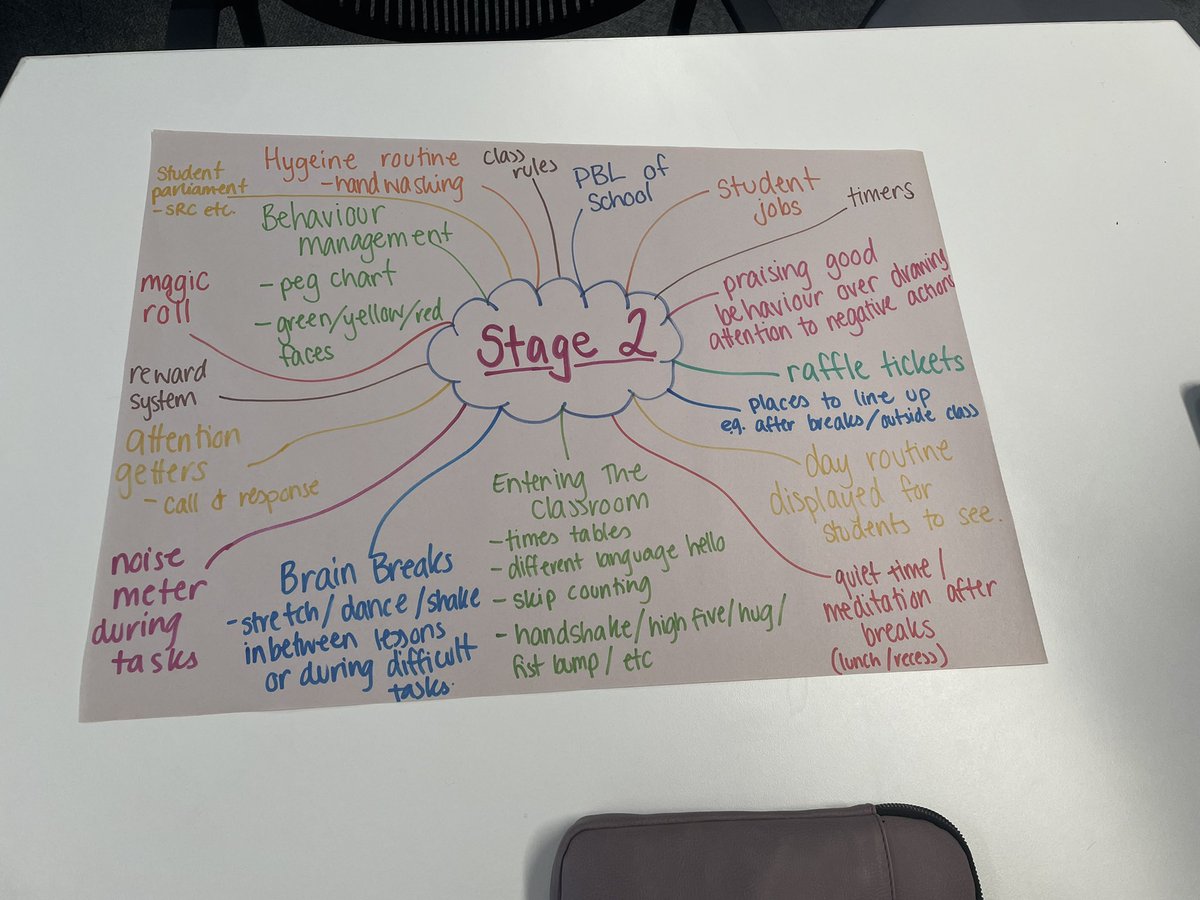 Stage 2
Student
parliament
- SRC etc.
Hygeine routine
- hand washing
class
rules
PBL of
School
student
jobs
timers
Behaviour
management
- peg chart
- green/yellow/red
faces
praising good
behaviour over drawing
attention to negative actions
magic
roll
raffle tickets
reward
system
places to line up
e.g. after breaks/outside class
attention
getters
- call & response
day routine
displayed for
students to see.
Entering The
classroom
- times tables
- different language hello
- skip counting
- handshake/high five/hug/
fist bump/etc
noise
meter
during
tasks
Brain Breaks
- stretch/dance/shake
inbetween lessons
or during difficult
tasks.
quiet time/
meditation after
breaks
(lunch/recess)